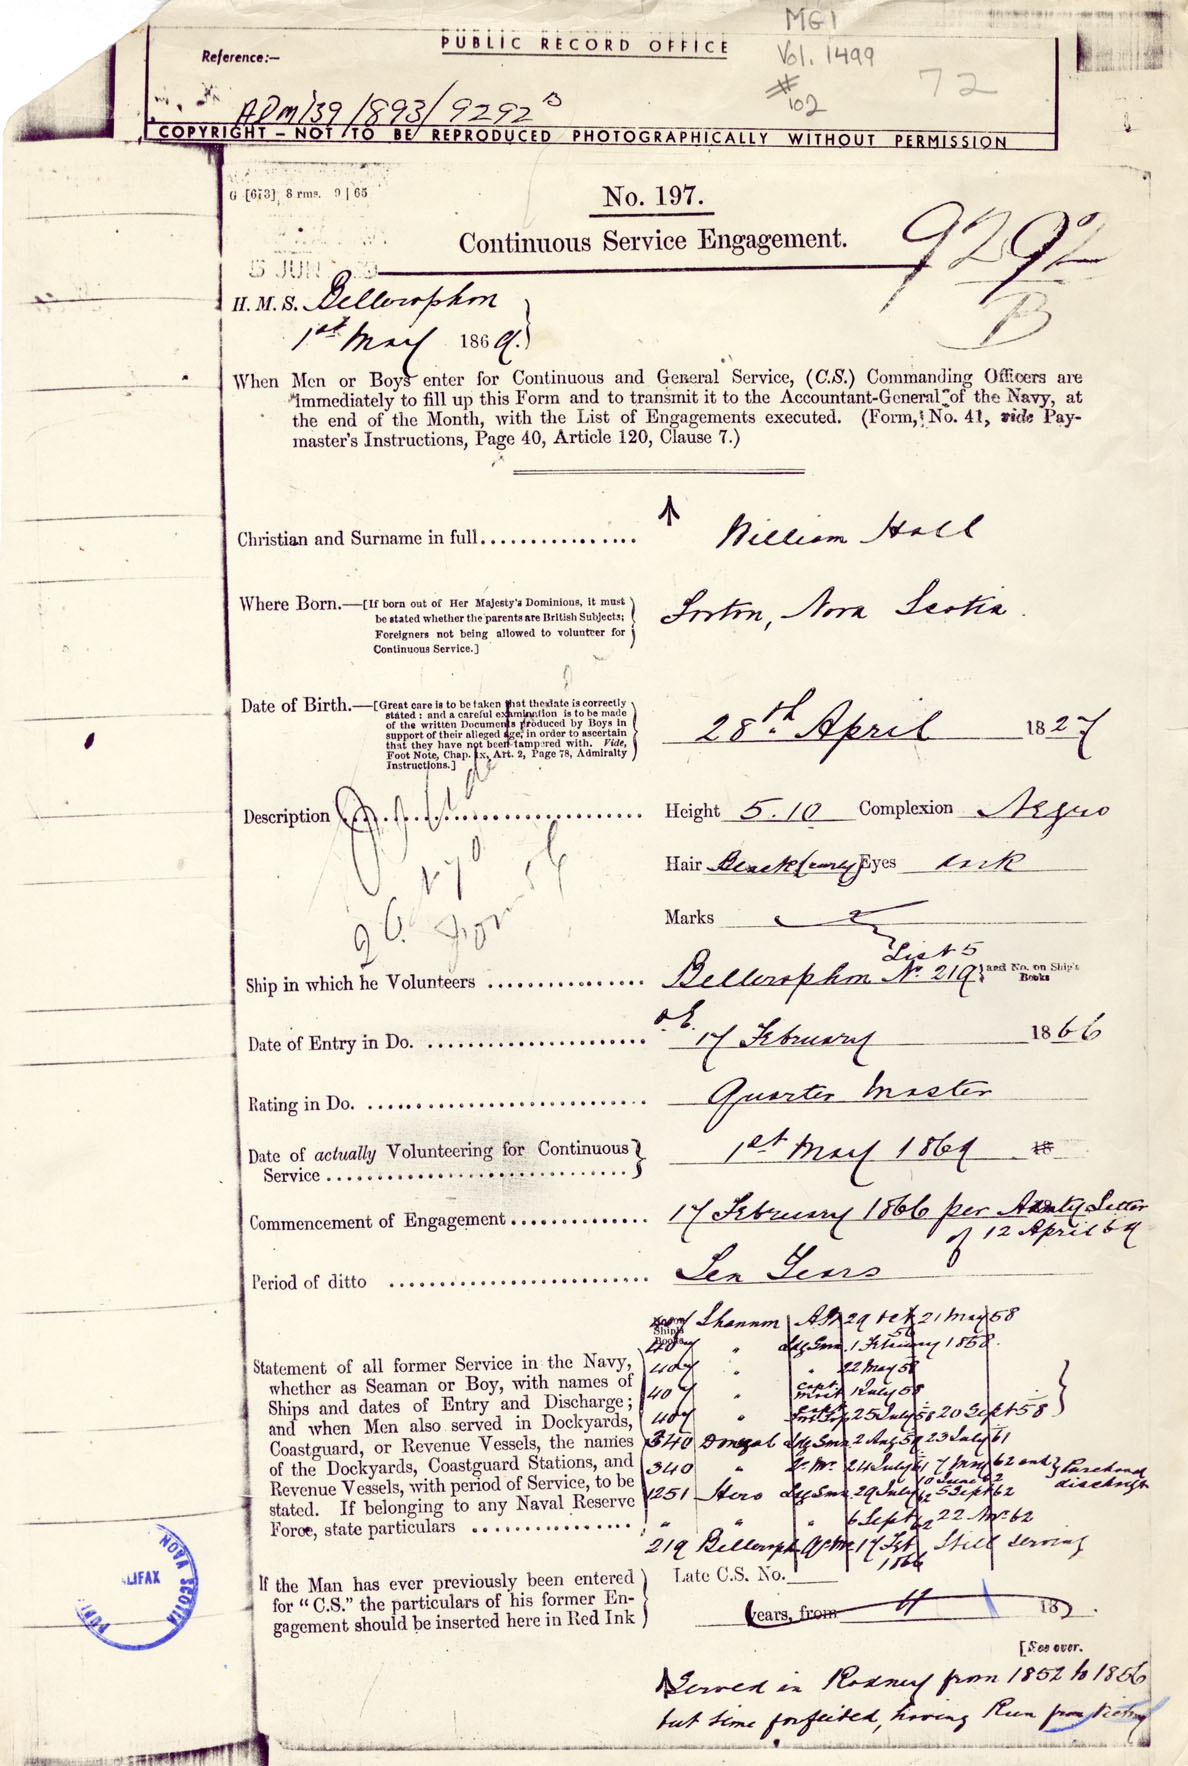 MG1
PUBLIC RECORD OFFICE
Vol. 1499
Reference:—
72
# 102
ADM/139/893/9292 B
COPYRIGHT — NOT TO BE REPRODUCED PHOTOGRAPHICALLY WITHOUT PERMISSION
G [673] 8 rms. 9 | 65
No. 197.
Continuous Service Engagement.
9292
B
5 JUN
H.M.S. Bellerophon
1st May 1869.
When Men or Boys enter for Continuous and General Service, (C.S.) Commanding Officers are
immediately to fill up this Form and to transmit it to the Accountant-General of the Navy, at
the end of the Month, with the List of Engagements executed. (Form, No. 41, vide Pay-
master's Instructions, Page 40, Article 120, Clause 7.)
Christian and Surname in full................ William Hall
Where Born.—[If born out of Her Majesty's Dominions, it must
be stated whether the parents are British Subjects;
Foreigners not being allowed to volunteer for
Continuous Service.]
Horton, Nova Scotia.
Date of Birth.—[Great care is to be taken that the date is correctly
stated: and a careful examination is to be made
of the written Documents produced by Boys in
support of their alleged age, in order to ascertain
that they have not been tampered with. Vide,
Foot Note, Chap. ix, Art. 2, Page 78, Admiralty
Instructions.]
28th April 1827
Description Height 5.10 Complexion Negro
Hair Black (curly) Eyes dark
Marks
List 5
Ship in which he Volunteers Bellerophon No. 219 and No. on Ship's Books
Date of Entry in Do. 17 February 1866
Rating in Do. Quarter Master
Date of actually Volunteering for Continuous
Service 1st May 1869 18
Commencement of Engagement 17 February 1866 per Admty Letter
of 12 April 69
Period of ditto Ten Years
Statement of all former Service in the Navy,
whether as Seaman or Boy, with names of
Ships and dates of Entry and Discharge;
and when Men also served in Dockyards,
Coastguard, or Revenue Vessels, the names
of the Dockyards, Coastguard Stations, and
Revenue Vessels, with period of Service, to be
stated. If belonging to any Naval Reserve
Force, state particulars
407 Shannon AB 29 Oct 56 21 May 58
407 " Ldg Smn 1 February 1858.
407 " " 22 May 58
407 " Capt Mast 1 July 58
407 " 25 July 58 20 Sept 58
340 Donegal Ldg Smn 2 Aug 59 23 July 61
340 " 24 July 61 62 and Purchased discharge
1251 Hero Ldg Smn 10 June 62 5 Sept 62
" " " 6 Sept 62 22 62
219 Belleroph Qr Mr 17 Feb 1866 Still serving
If the Man has ever previously been entered
for "C.S." the particulars of his former En-
gagement should be inserted here in Red Ink
Late C.S. No.
years, from 18
[See over.
Served in Rodney from 1852 to 1856
but time forfeited, having Run from Victory
HALIFAX
NOVA SCOTIA